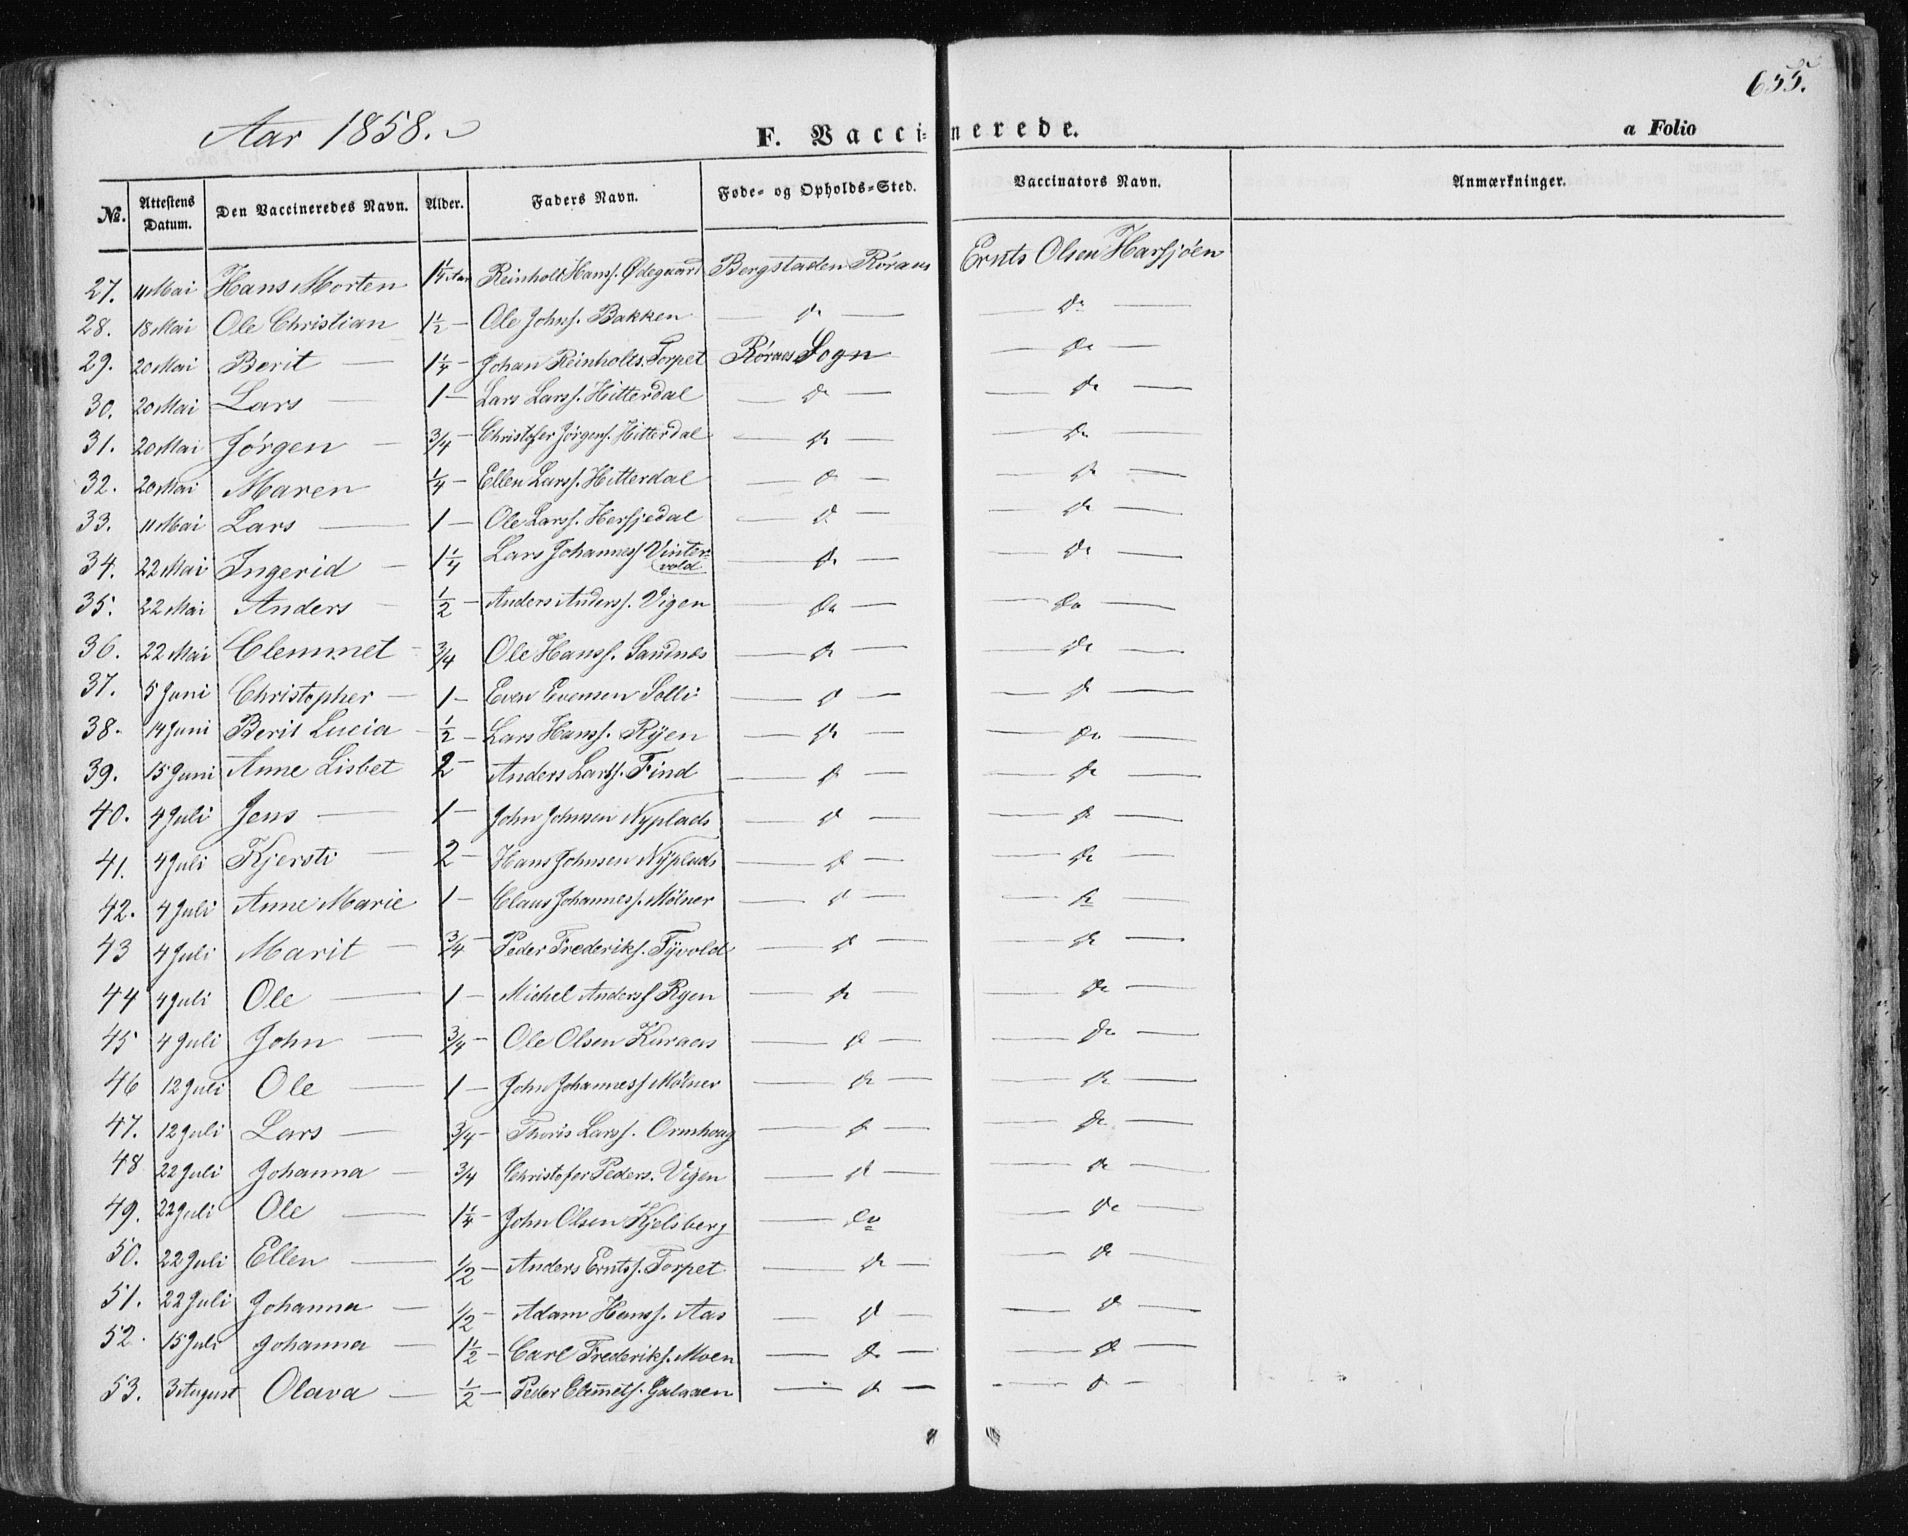 655.
Aar 1858.
F. Vaccinerede.
a Folio
No. Attestens Datum. Den Vaccineredes Navn. Alder. Faders Navn. Føde- og Opholds-Sted. Vaccinators Navn. Anmærkninger.
27. 11 Mai Hans Morten 1 1/4 Aar Reinholt Hanss. Ødegaard Bergstaden Røraas Ernts Olsen Harsjøen
28. 18 Mai Ole Christian 1 1/2 — Ole Johns. Bakken — do — — do —
29. 20 Mai Berit — 1 1/4 — Johan Reinholts. Torpet Røraas Sogn — do —
30. 20 Mai Lars — 1 — Lars Larss. Hitterdal — do — — do —
31. 20 Mai Jörgen — 3/4 — Christofer Jørgens. Hitterdal — do — — do —
32. 20 Mai Maren 1/4 — Ellen Larss. Hitterdal — do — — do —
33. 11 Mai Lars — 1 — Ole Larss. Hersjedal — do — — do —
34. 22 Mai Ingerid — 1 1/4 Lars Johanness Vintervold — do — — do —
35. 22 Mai Anders — 1/2 — Anders Anderss. Vigen — do — — do —
36. 22 Mai Clemmet — 3/4 Ole Hanss. Sandnes — do — — do —
37. 5 Juni Christopher — 1 — Even Evensen Solli — do — — do —
38. 14 Juni Berit Lucia — 1/2 — Lars Hanss. Rÿen — do — — do —
39. 15 Juni Anne Lisbet 2 — Anders Larss. Find — do — — do —
40. 4 Juli Jens — 1 — John Johnsen Nyplads — do — — do —
41. 4 Juli Kjersti — 2 — Hans Johnsen Nÿplads — do — — do —
42. 4 Juli Anne Marie 1 — Claus Johanness. Mølner — do — — do —
43 4 Juli Marit — 3/4 — Peder Frederiks. Tÿvold — do — — do —
44 4 Juli Ole — 1 — Michel Anderss Ryen — do — — do —
45 4 Juli John — 3/4 — Ole Olsen Kuraas — do — — do —
46 12 Juli Ole — 1 — John Johanness Mølner — do — — do —
47. 12 Juli Lars — 3/4 — Thoris Larss. Ormhoug — do — — do —
48 22 Juli Johanna — 3/4 Christofer Peders. Vigen — do — — do —
49. 22 Juli Ole — 1 1/4 — John Olsen Kjelsberg — do — — do —
50. 22 Juli Ellen — 1/2 — Anders Erntss. Torpet — do — — do —
51. 22 Juli Johanna — 1/2 — Adam Hanss. Aas — do — — do —
52. 15 Juli Johanna — 1 1/2 — Carl Frederiks. Moen — do — — do —
53. 3 August Olava — 1/2 — Peder Clemmets. Galaaen — do — — do —